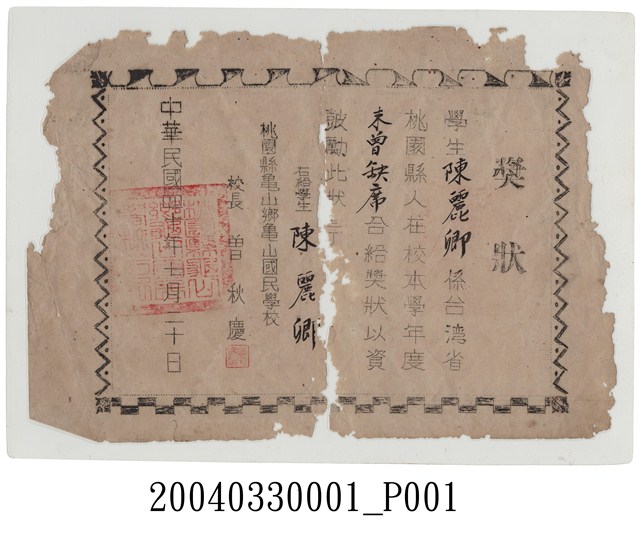 獎狀
學生陳麗卿係台湾省
桃園縣人在校本學年度
未曾缺席合給獎狀以資
鼓勵此状
右給學生 陳麗卿
桃園縣亀山鄉亀山國民學校
校長 曾秋慶
中華民國四 年七月二十日
20040330001_P001